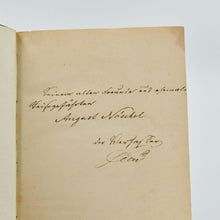 Seinem alten Freunde und ehemal.
Reisegefährten
August Nöckel
der Verfasser